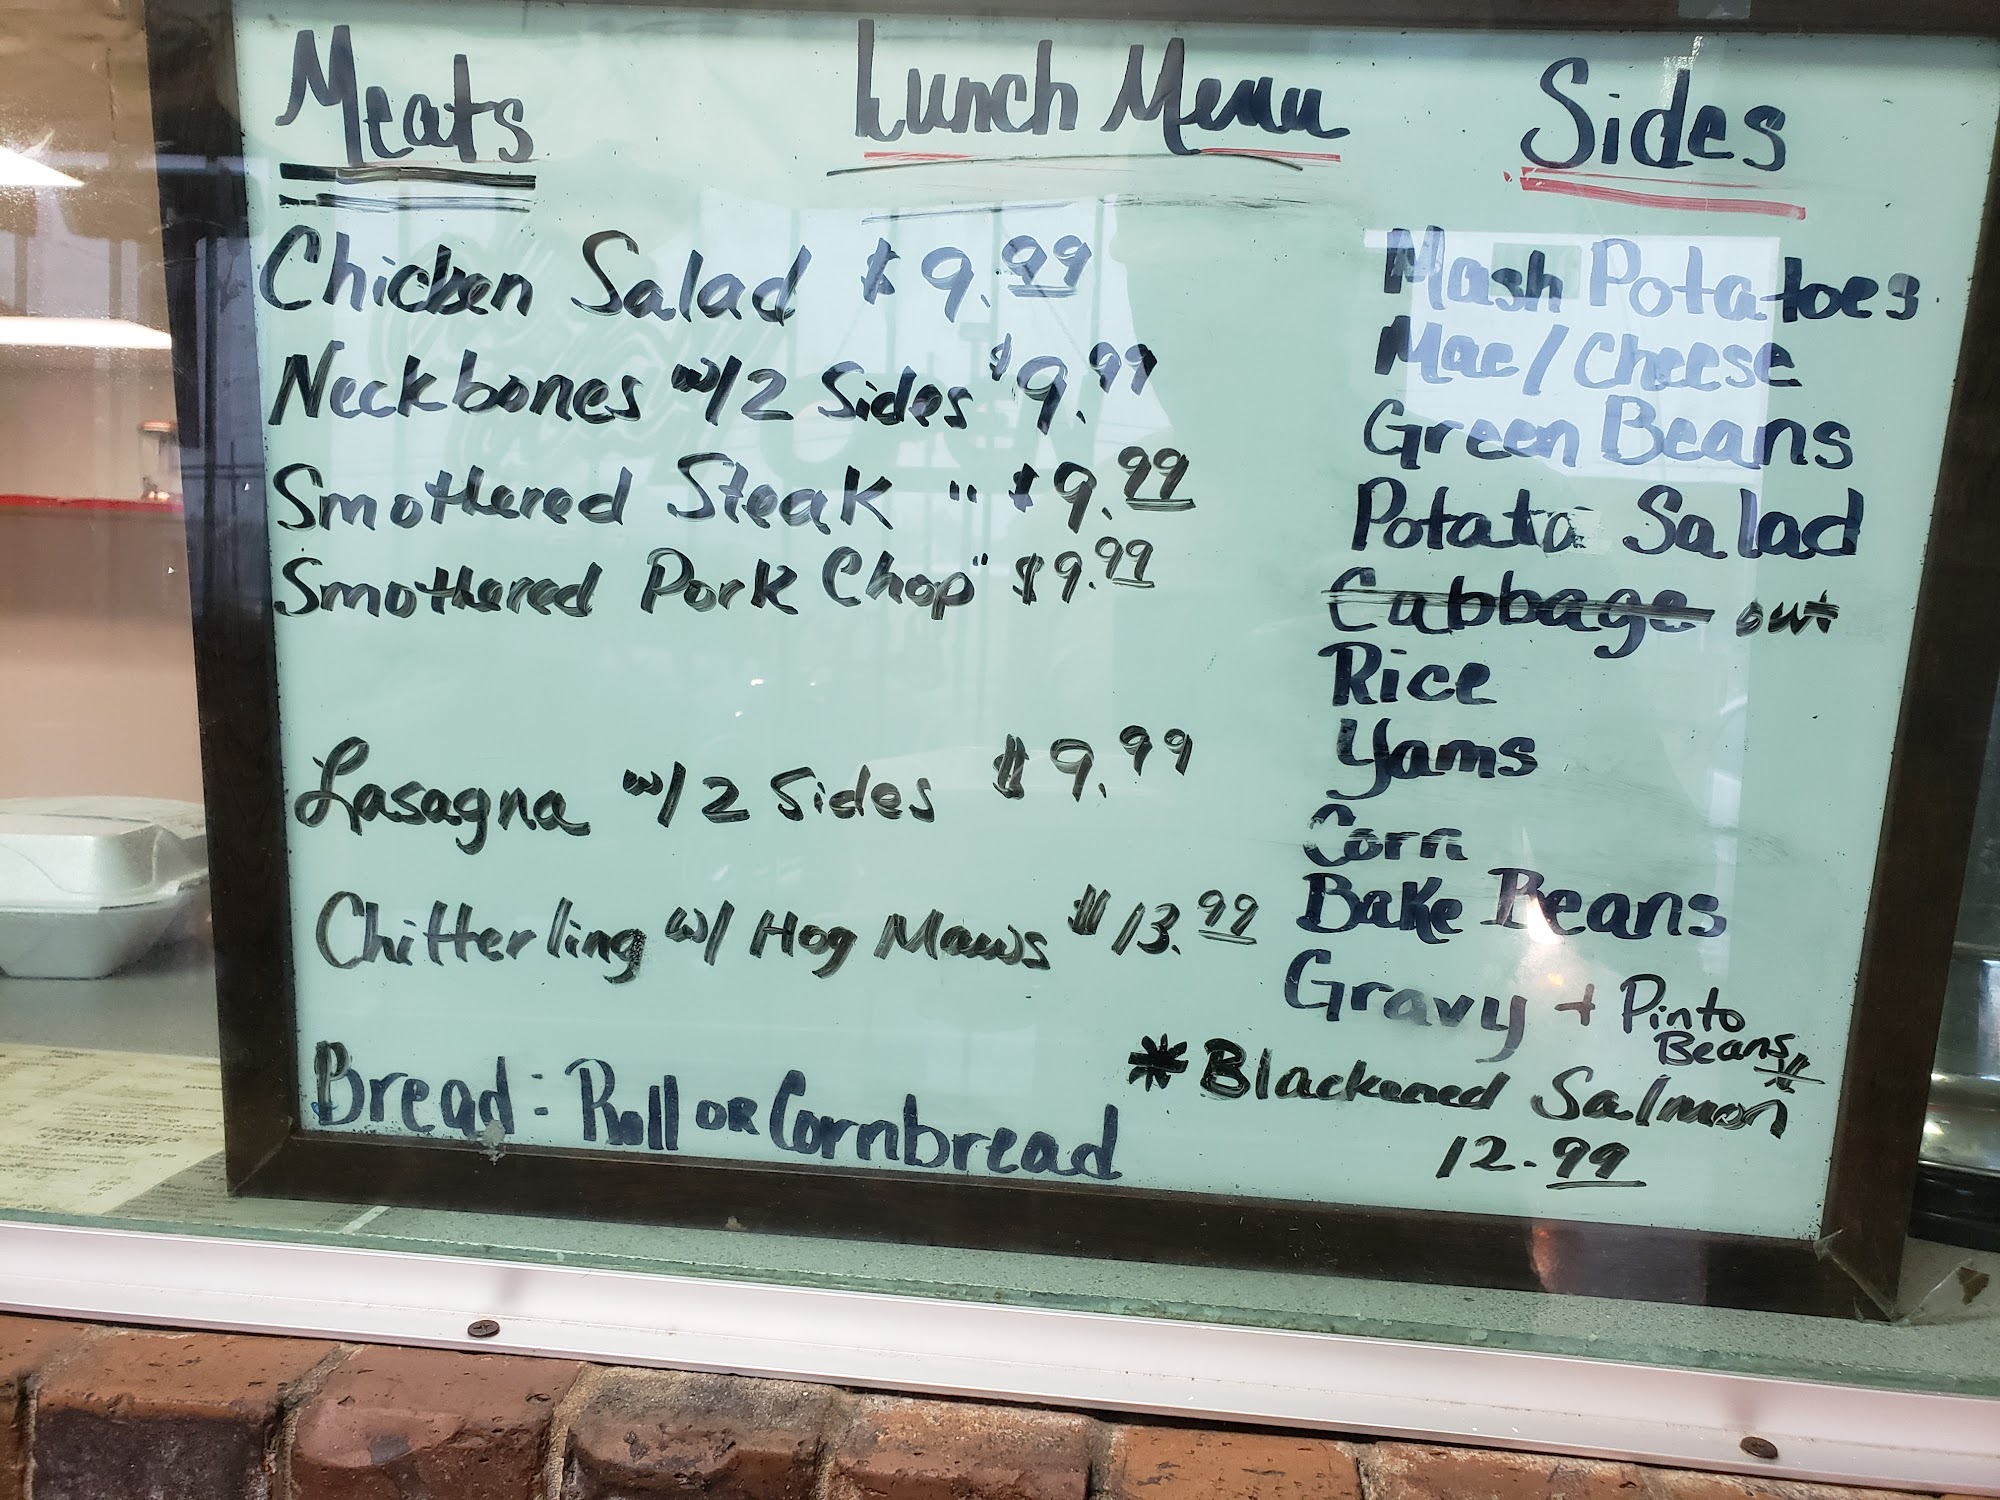 Meats
Lunch Menu
Sides
Chicken Salad $9.99
Neckbones w/2 Sides $9.99
Smothered Steak " $9.99
Smothered Pork Chop " $9.99
Lasagna w/2 Sides $9.99
Chitterling w/ Hog Maws $13.99
Bread: Roll OR Cornbread
Mash Potatoes
Mac/Cheese
Green Beans
Potato Salad
Cabbage out
Rice
Yams
Corn
Bake Beans
Gravy + Pinto
Beans
*Blackened Salmon*
12.99